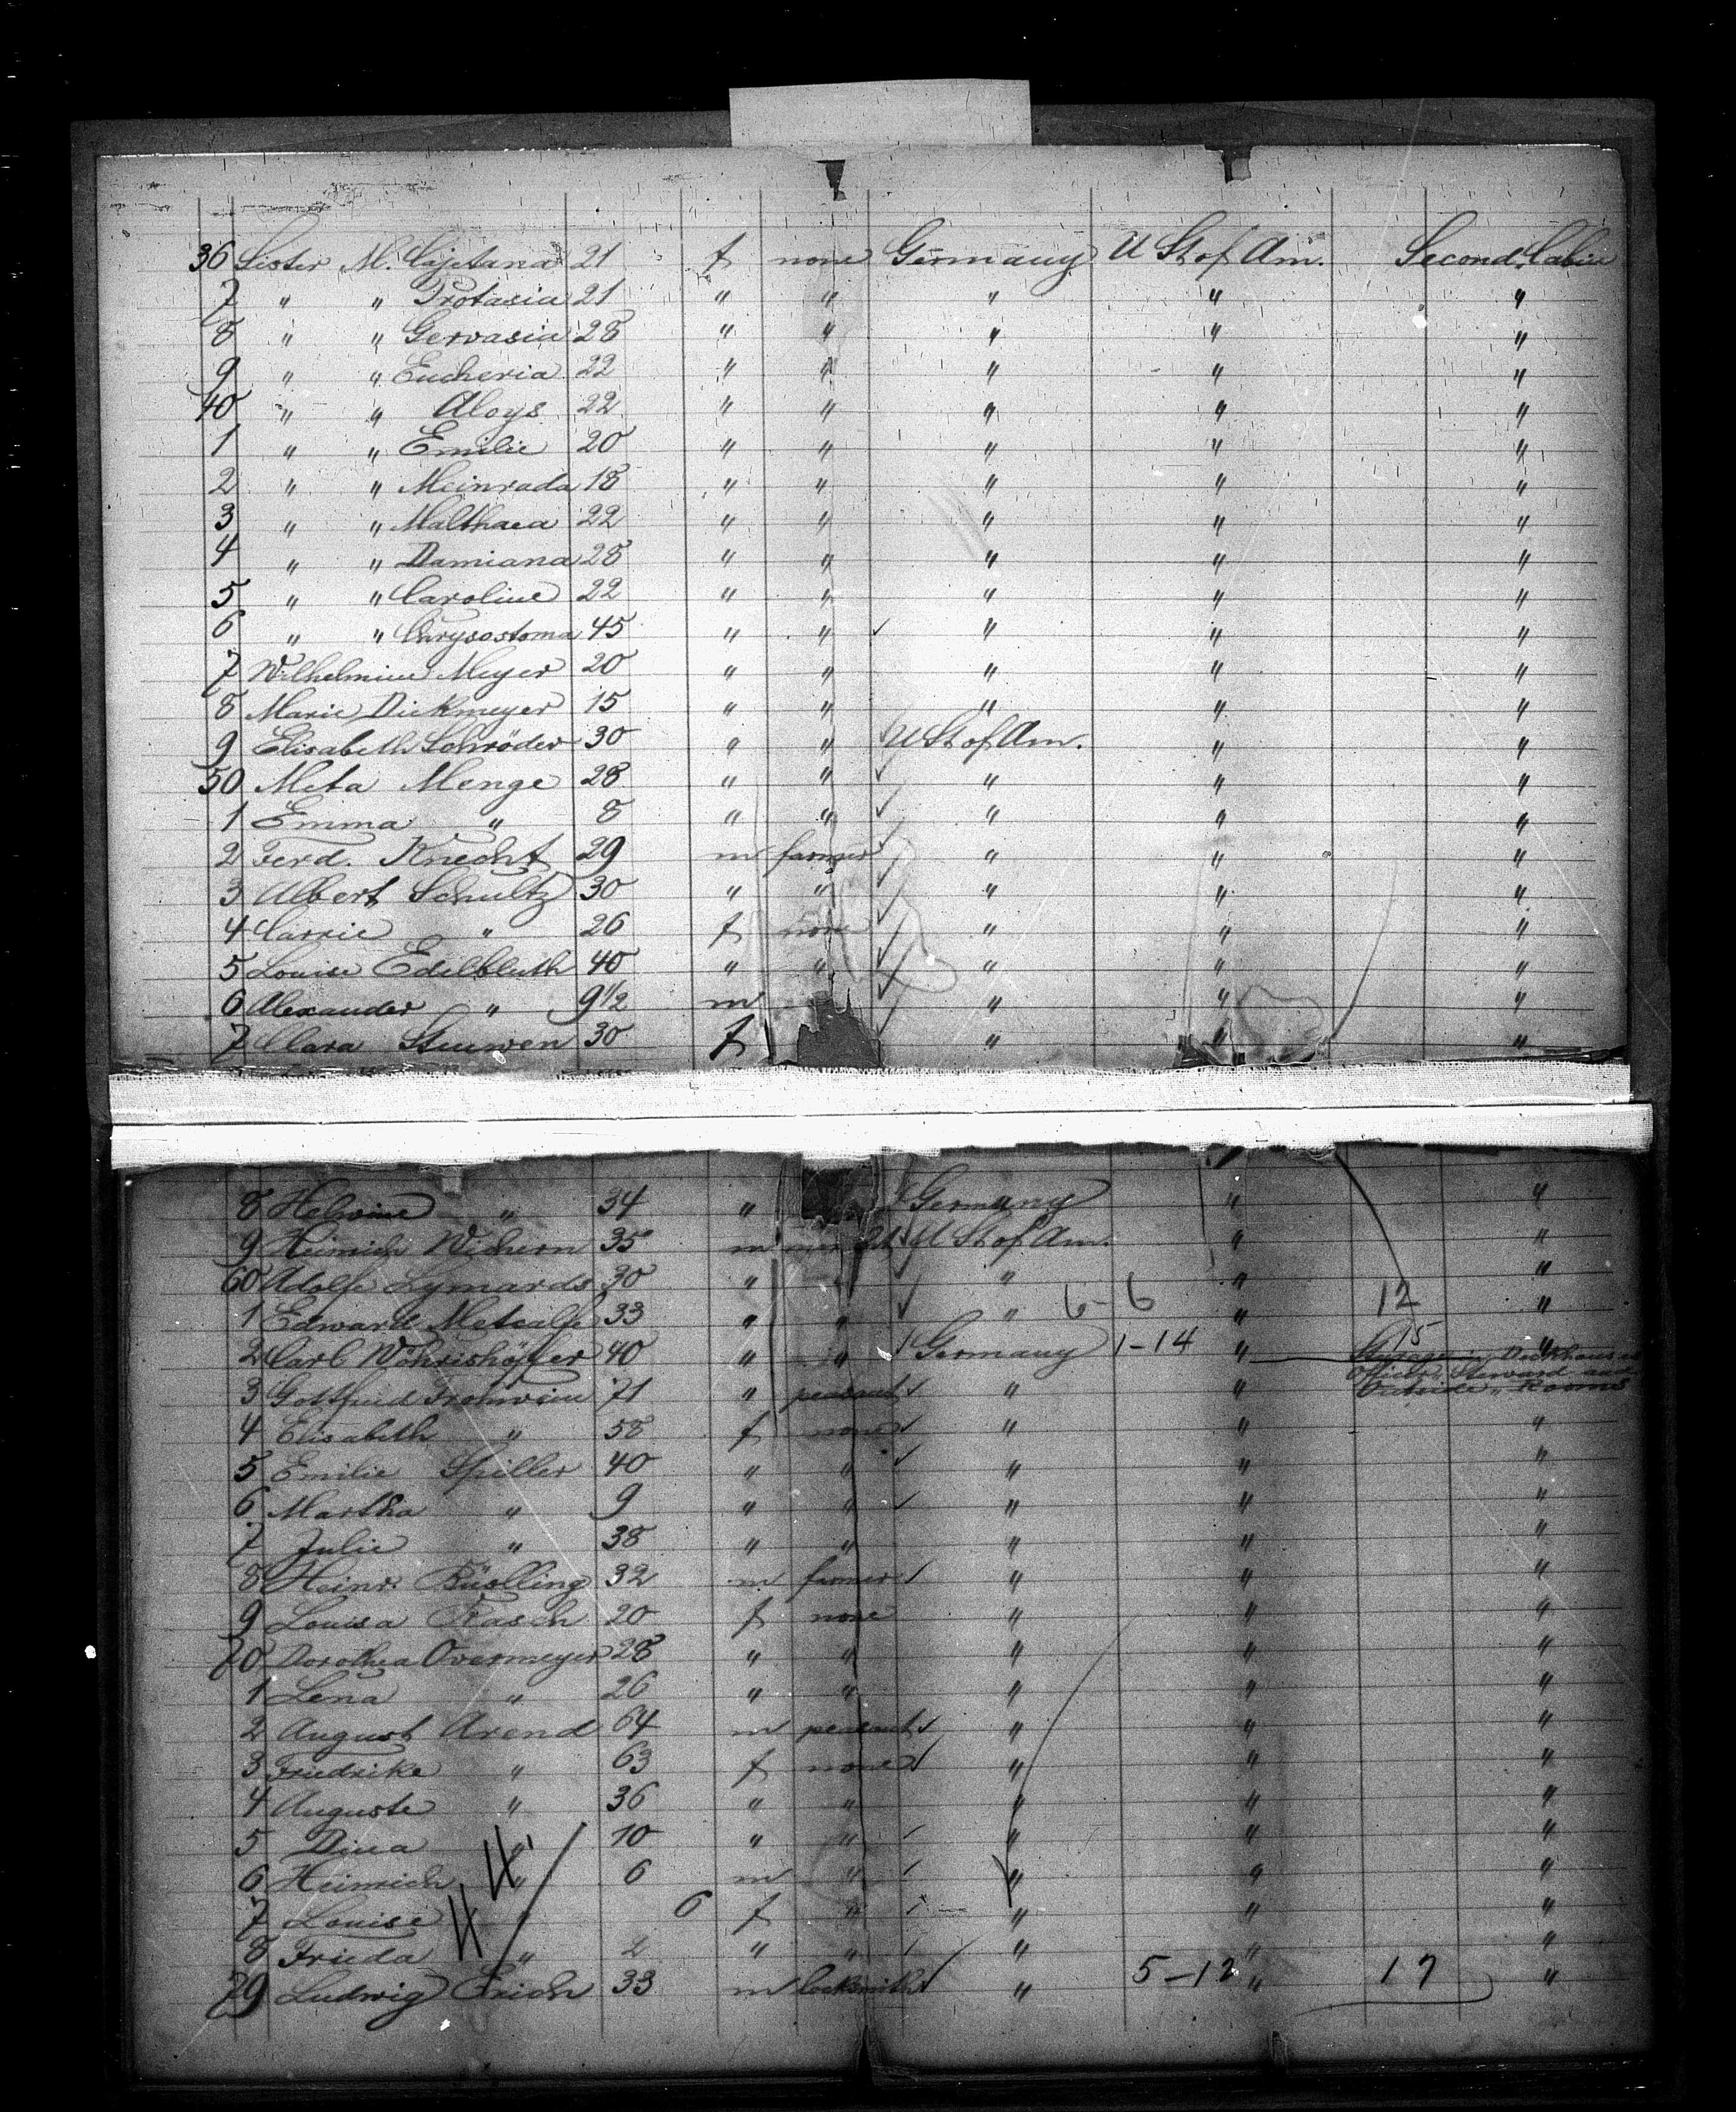 36 Sister M. Cajetana 21 f none Germany U St of Am. Second Cabin
7 " " Protasia 21 " " " " "
8 " " Gervasia 28 " " " " "
9 " " Eucheria 22 " " " " "
40 " " Aloys 22 " " " " "
1 " " Emilie 20 " " " " "
2 " " Meinrada 18 " " " " "
3 " " Malthaea 22 " " " " "
4 " " Damiana 28 " " " " "
5 " " Caroline 22 " " " " "
6 " " Chrysostoma 45 " " " " "
7 Wilhelmine Meyer 20 " " " " "
8 Marie Dickmeyer 15 " " " " "
9 Elisabeth Schröder 30 " " U St of Am. " "
50 Meta Menge 28 " " " " "
1 Emma " 8 " " " " "
2 Ferd. Knecht 29 m farmer " " "
3 Albert Schultz 30 " " " " "
4 Carrie " 26 f none " " "
5 Louise Edelbluth 40 " " " " "
6 Alexander " 9 1/2 m " " "
7 Clara Stuwen 30 f " " "
8 Helvine " 34 " Germany " "
9 Heinrich Wichern 35 m U St of Am. " "
60 Adolfe Lymards 30 " " " " "
1 Edward Metcalfe 33 " " " 6-6 " 12 "
2 Carl Wöhrishöffer 40 " " Germany 1-14 " 15 "
Deckhouses
Officers Steward and
Outside " Rooms
3 Gottfried 71 " peasant " "
4 Elisabeth " 58 f none " " "
5 Emilie Spiller 40 " " " " "
6 Martha " 9 " " " " "
7 Julie " 38 " " " " "
8 Heinr. Büslling 32 m farmer " " "
9 Louisa Rasch 20 f none " " "
70 Dorothea Overmeyer 28 " " " " "
1 Lena " 26 " " " " "
2 August Arend 64 m peasant " " "
3 Friedrike " 63 f none " " "
4 Auguste " 36 " " " " "
5 Dina " 10 " " " " "
6 Heinrich " 6 m " " " "
7 Louise " 6 f " " " "
8 Frieda " 2 " " " " "
79 Ludwig Erich 33 m locksmith " 5-12 " 17 "